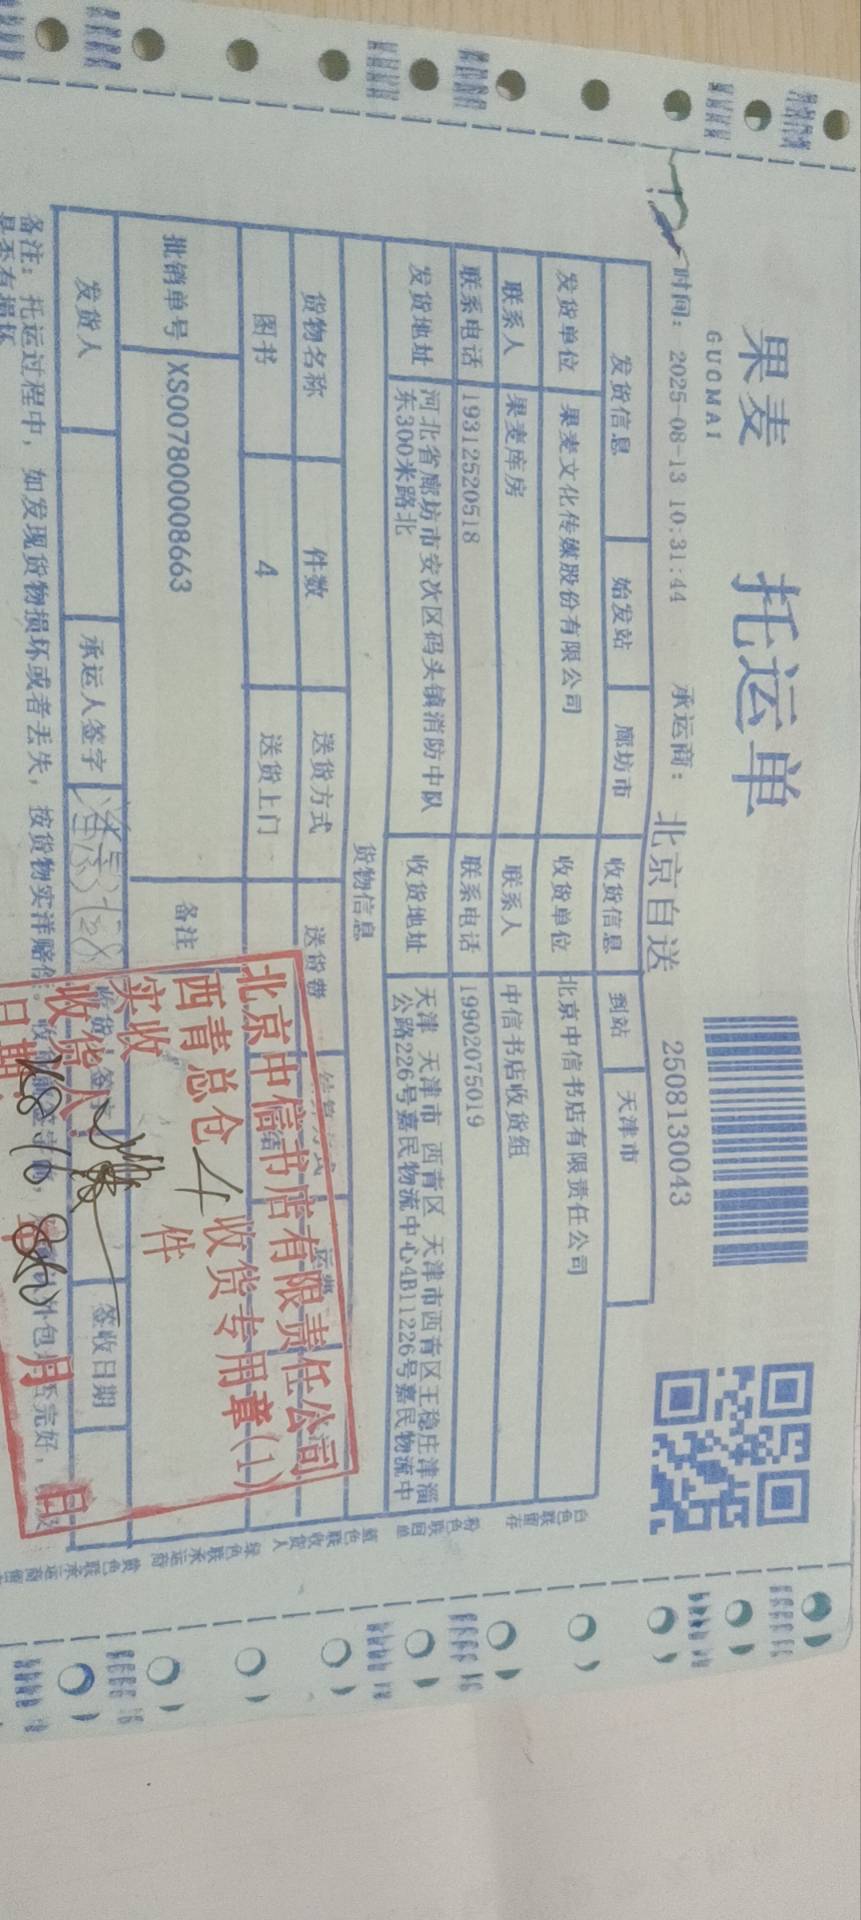 果麦
GUOMAI
托运单
时间：2025-08-13 10:31:44 承运商：北京自送 2508130043
发货信息 始发站 廊坊市 收货信息 到站 天津市
发货单位 果麦文化传媒股份有限公司 收货单位 北京中信书店有限责任公司
联系人 果麦库房 联系人 中信书店收货组
联系电话 19312520518 联系电话 19902075019
发货地址 河北省廊坊市安次区码头镇消防中队
东300米路北
收货地址 天津 天津市 西青区 天津市西青区王稳庄津淄
公路226号嘉民物流中心4B11226号嘉民物流中
货物信息
货物名称 件数 送货方式 送货费 结算方式 运费
图书 4 送货上门
批销单号 XS007800008663 备注
发货人 承运人签字 收货人签字 签收日期
备注：托运过程中，如发现货物损坏或者丢失，按货物实洋赔偿。
是否有损坏
北京中信书店有限责任公司
西青总仓 收货专用章(1)
实收 4 件
收货人：
日期： 月 日
白色联留存
粉色联回单
蓝色联收货人
绿色联承运商
黄色联承运商